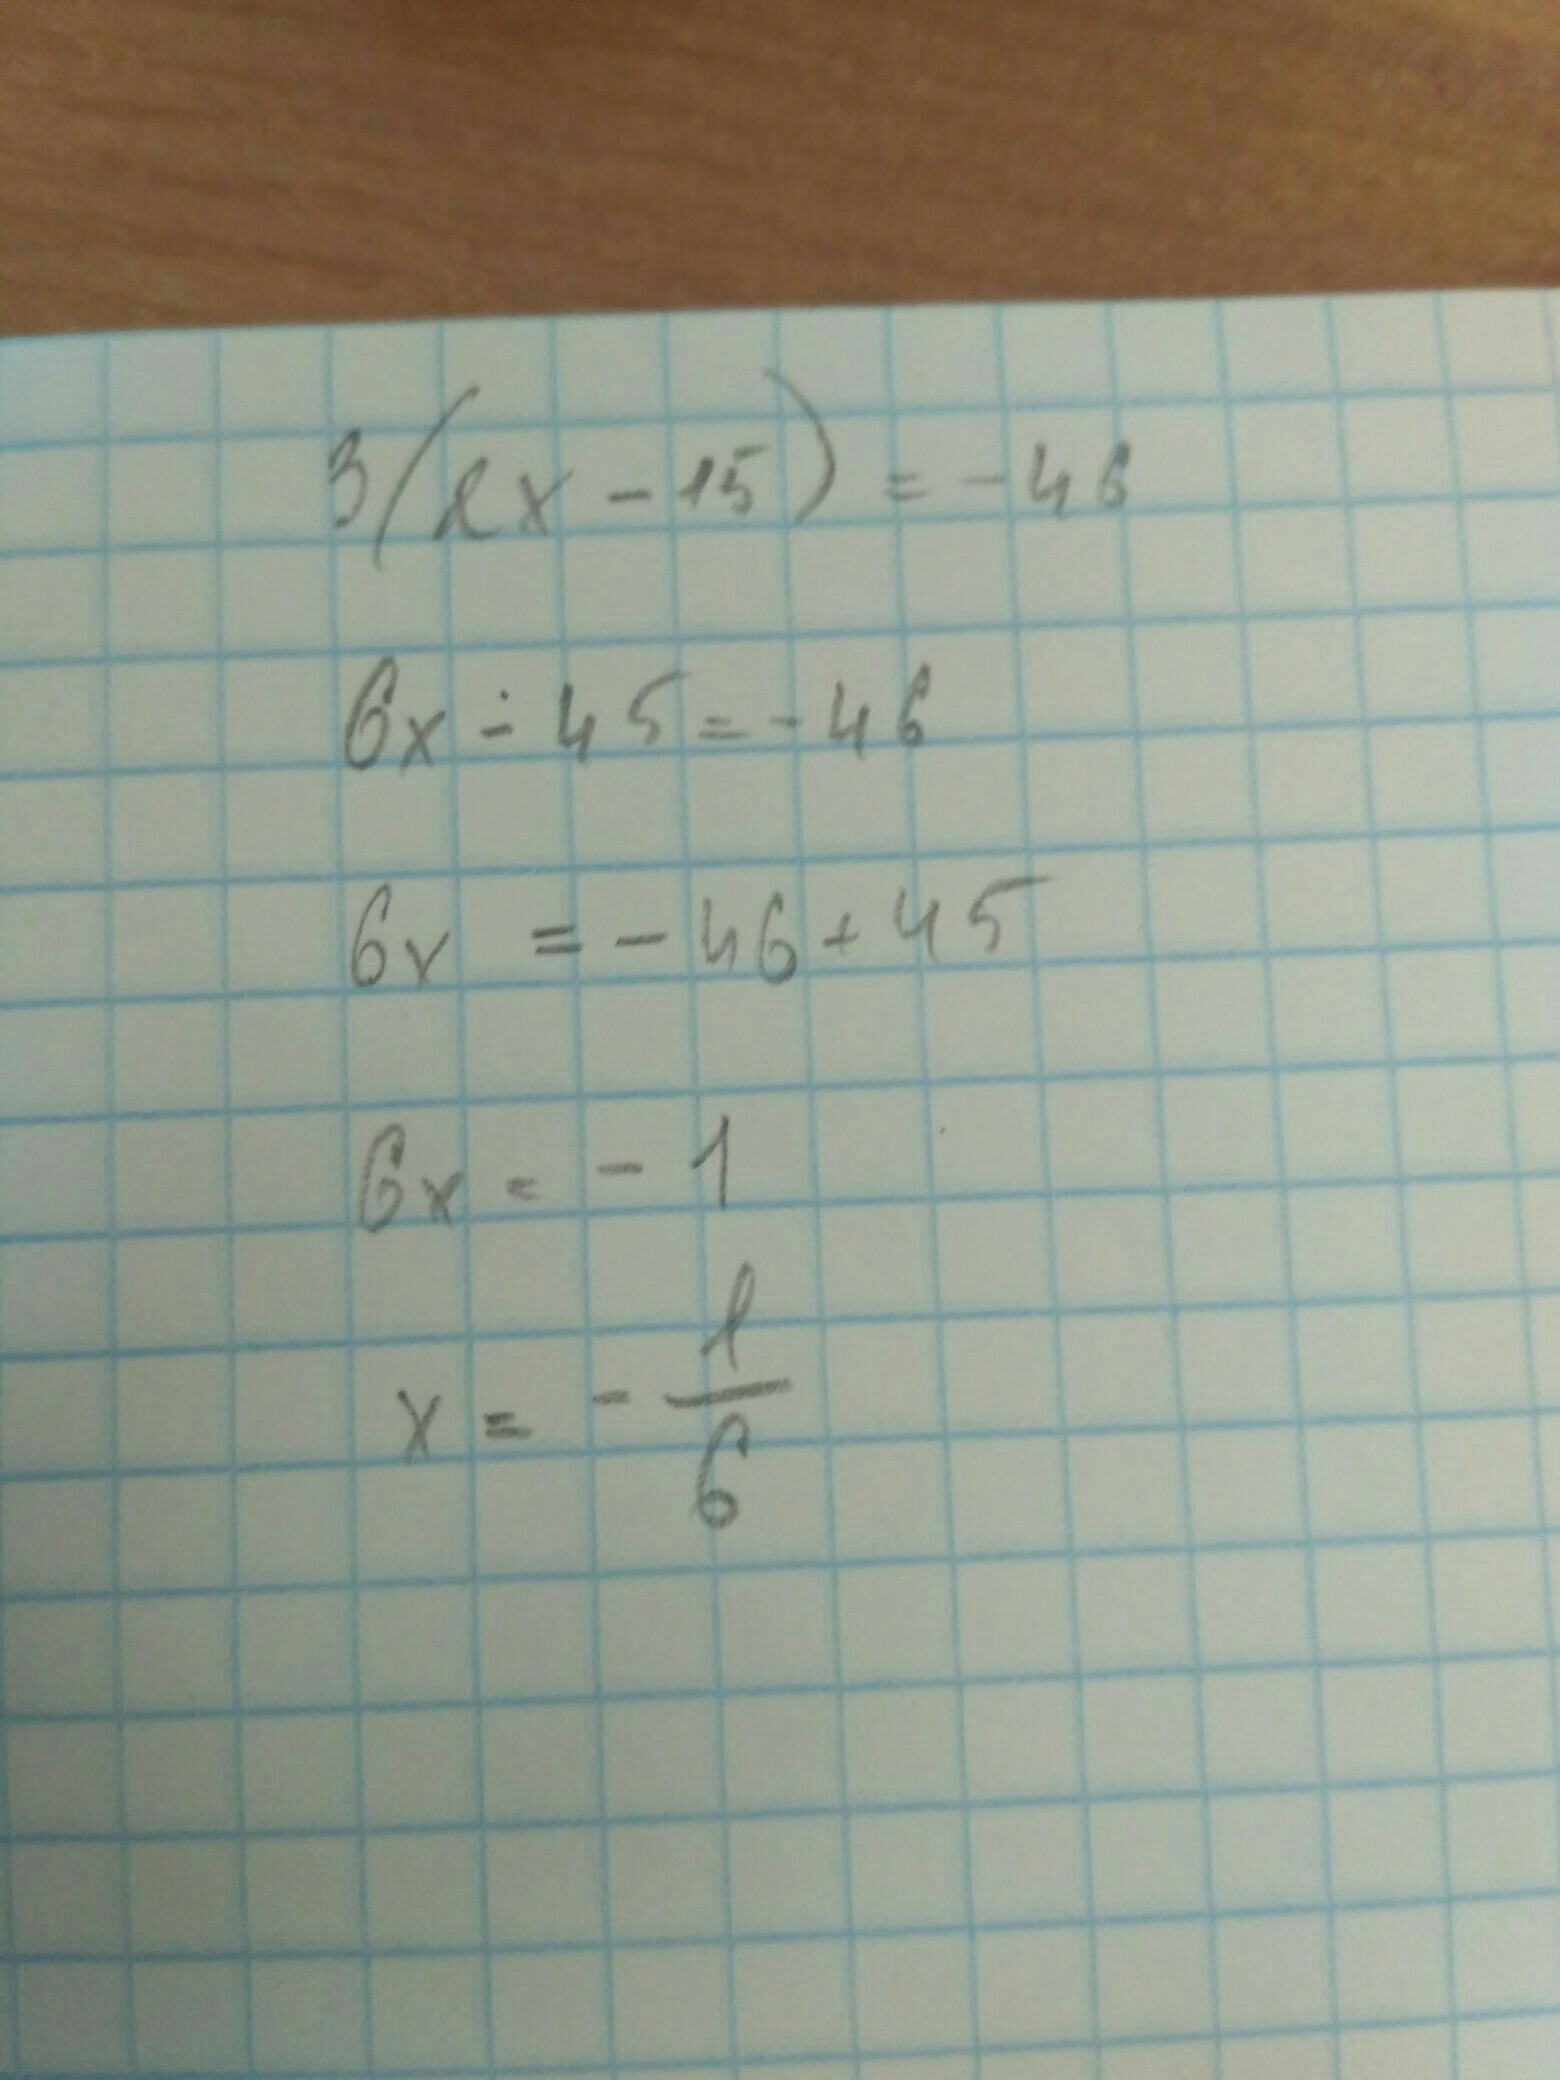 3(2x - 15) = - 46
6x - 45 = - 46
6x = - 46 + 45
6x = - 1
x = - 1/6